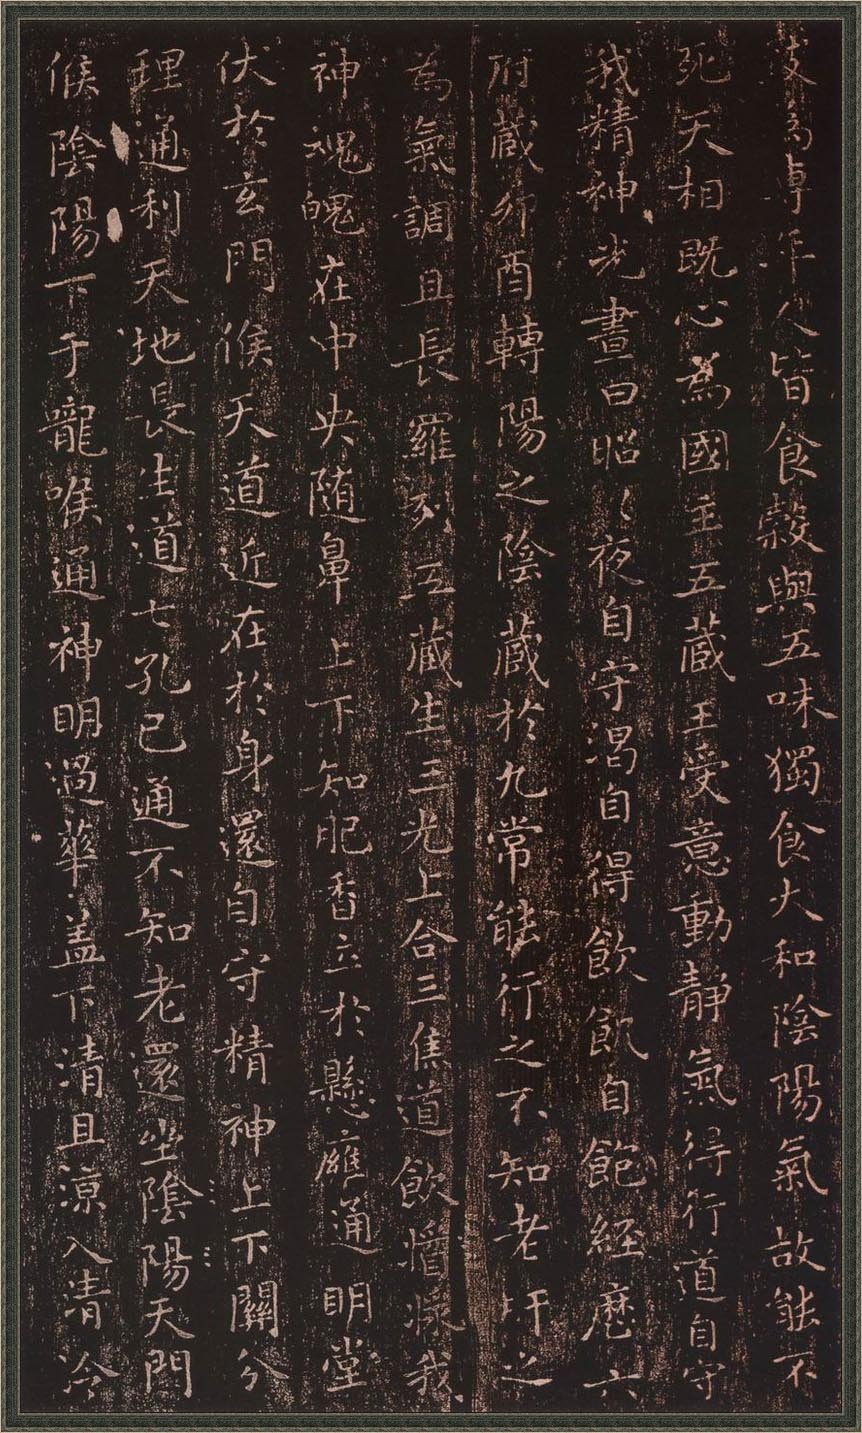 使為專年人皆食穀與五味獨食大和陰陽氣故能不
死天相既心為國主五藏王受意動靜氣得行道自守
我精神光晝日昭〻夜自守渴自得飲飢自飽經歷六
府藏卯酉轉陽之陰藏於九常能行之不知老肝之
為氣調且長羅列五藏生三光上合三焦道飲漿我
神魂魄在中央随鼻上下知肥香立於懸膺通明堂
伏於玄門候天道近在於身還自守精神上下關分
理通利天地長生道七孔已通不知老還坐陰陽天門
候陰陽下于嚨喉通神明過華盖下清且涼入清冷